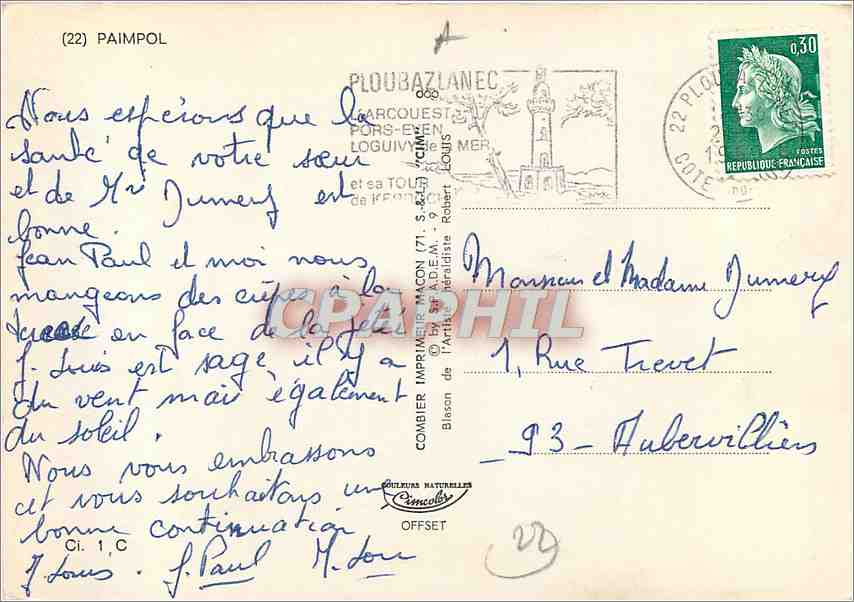 (22) PAIMPOL
Nous espérons que la
santé de votre sœur
et de Mr Jumery est
bonne.
Jean Paul et moi nous
mangeons des crêpes à la
en face de la jetée
J. Louis est sage, il y a
du vent mais également
du soleil.
Nous vous embrassons
et vous souhaitons une
bonne continuation
J. Louis. J. Paul M. Lou
Ci. 1, C
COMBIER IMPRIMEUR MACON (71. S.-&-L.) "CIM"
© by S.P.A.D.E.M. - 9
Blason de l'Artiste héraldiste Robert LOUIS
COULEURS NATURELLES
Cimcolor
OFFSET
PLOUBAZLANEC
ARCOUEST
PORS-EVEN
LOGUIVY de MER
et sa TOUR
de KERROC'H
22 PLOU
COTE
0,30
POSTES
REPUBLIQUE FRANÇAISE
Monsieur et Madame Jumery
1, Rue Trevet
93 - Aubervilliers
22
CPAPHIL